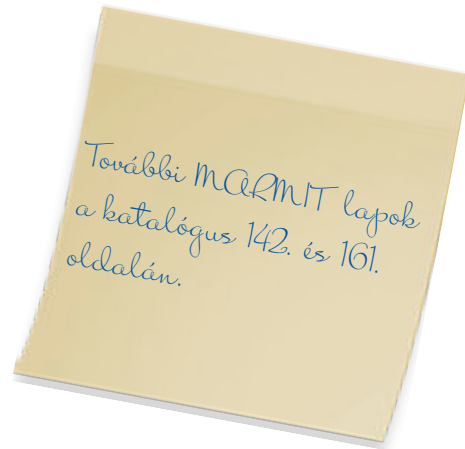 További MARMIT lapok
a katalógus 142. és 161.
oldalán.